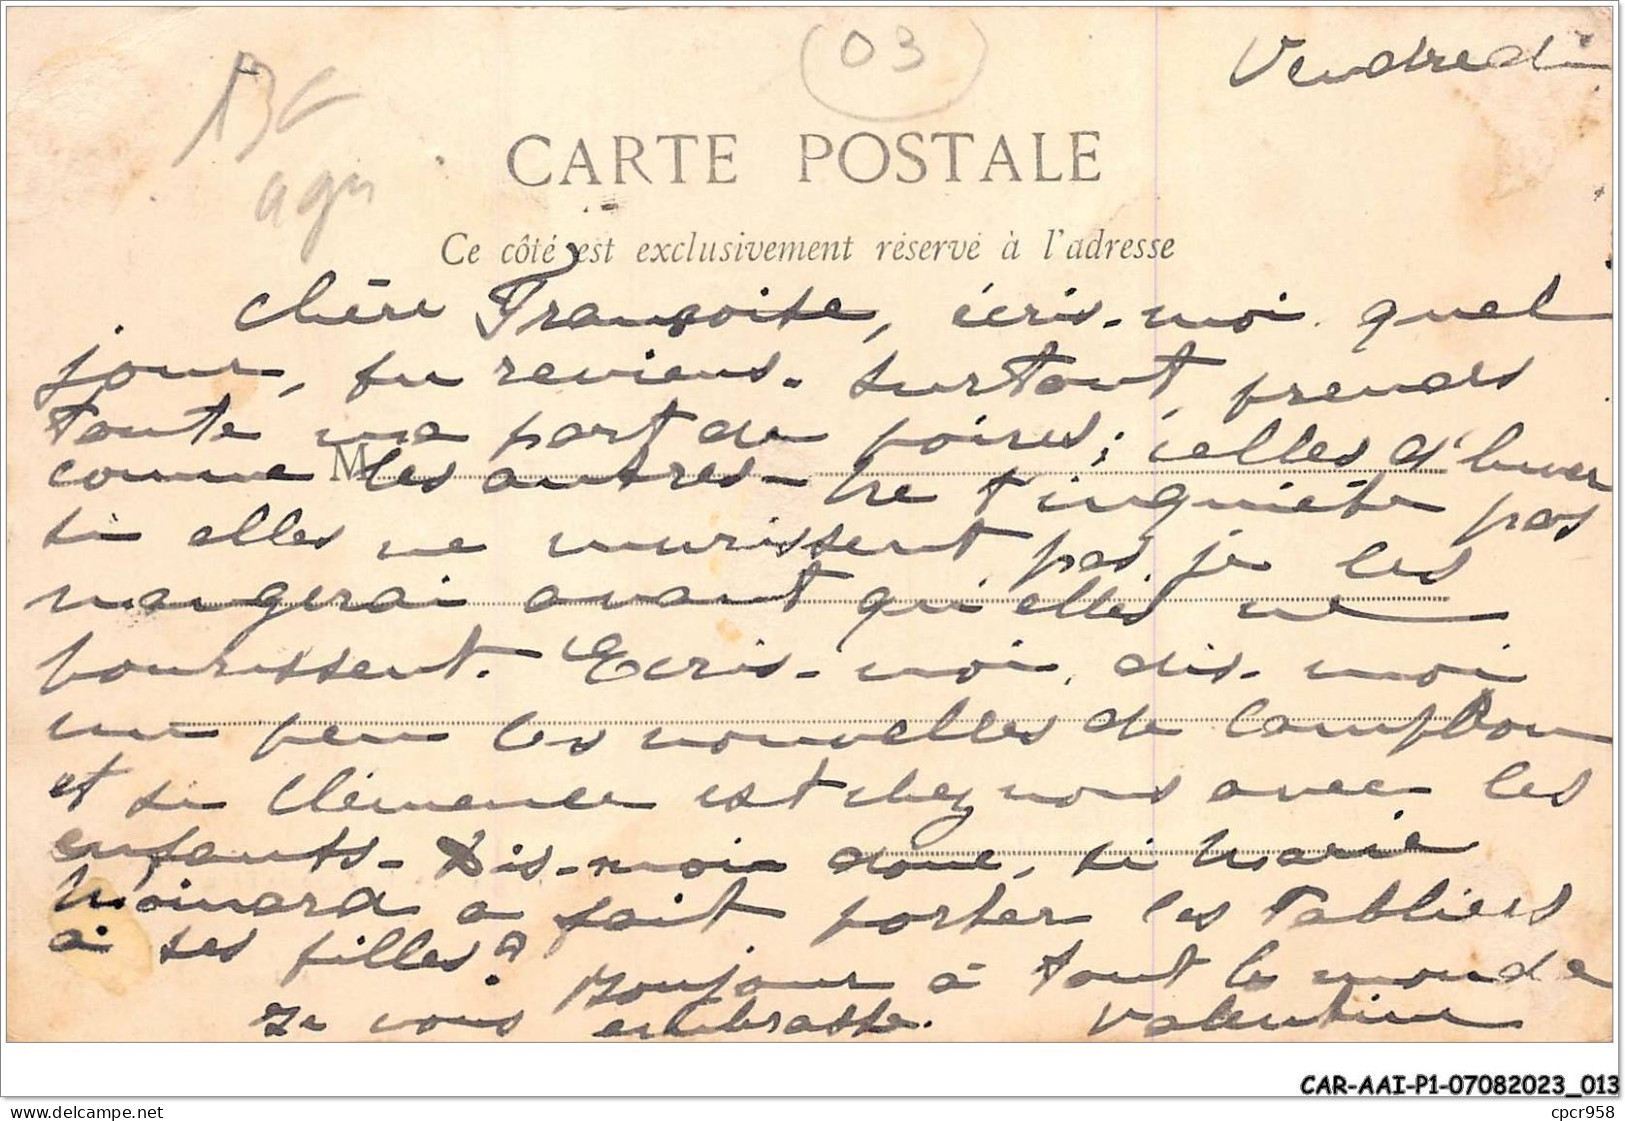 03
Vendredi
agn
CARTE POSTALE
Ce côté est exclusivement réservé à l'adresse
Chère Françoise, écris-moi quel
jour, tu reviens. Surtout, prends
toute ma part de poires; celles d'hiver
M
comme les autres - Ne t'inquiète pas
si elles ne murissent pas, je les
mangerai avant qu'elles ne
pourissent. Ecris-moi, dis-moi
un peu les nouvelles de
et si Clémence est chez nous avec les
enfants - Dis-moi donc, si Marie
Moinard a fait porter les tabliers
à ses filles?
Bonjour à tout le monde
Je vous embrasse. Valentine
CAR-AAI-P1-07082023_013
www.delcampe.net
cpcr958